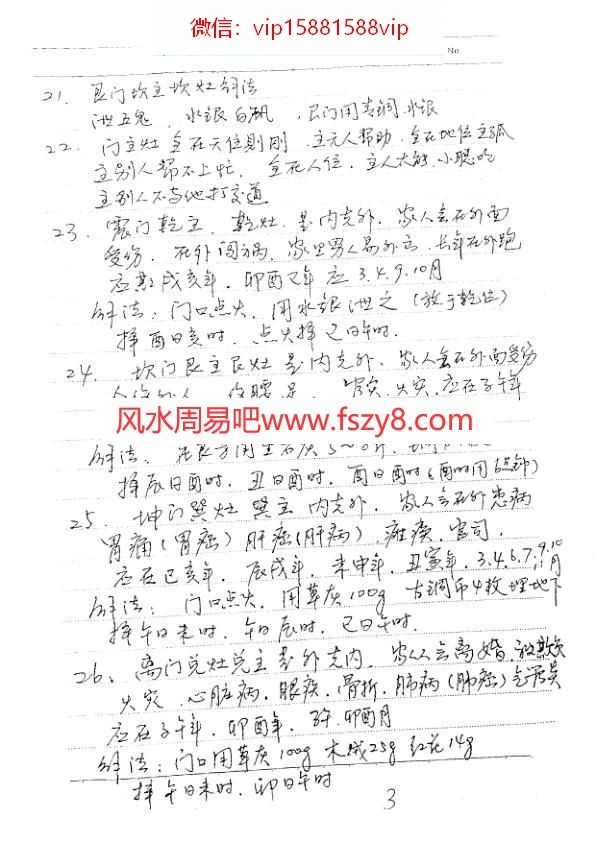 微信：vip15881588vip
No
21. 艮门坎主坎灶 解法
泄五鬼 水银白矾 艮门用青铜 水银
22. 门主灶 全在天位则刚 主无人帮助 全在地位主孤
主别人帮不上忙. 全在人位. 主人大能 小聪
主别人不与他打交道
23. 震门乾主 乾灶. 是内克外. 家人会在外面
受伤. 在外闯祸. 家里男人易外 长年在外跑
应期戌亥年. 卯酉 年 应 3.4.9.10月
解法: 门口点火. 用水银泄之 (放于乾位)
择酉日亥时. 点火择巳日午时.
24. 坎门艮主艮灶 是内克外. 家人会在外面受伤
火灾. 应在子午年
风水周易吧www.fszy8.com
解法.
择辰日酉时. 丑日酉时. 酉日酉时 (酉时用6点钟)
25. 坤门巽灶 巽主 内克外. 家人会在外患病
胃痛 (胃癌) 肝癌 (肝病) 瘫痪. 官司.
应在巳亥年. 辰戌年. 未申年. 丑寅年. 3.4.6.7.9.10
11月
解法: 门口点火. 用草灰100g 古铜币4枚埋地下
择午日未时. 午日辰时. 巳日午时.
26. 离门兑灶兑主 是外克内. 家人会离婚.
火灾 心脏病. 眼疾. 骨折. 肺病 (肺癌)
应在子午年. 卯酉年. 卯酉月
解法: 门口用草灰100g 木绒25g 红花14g
择午日未时. 卯日午时
3